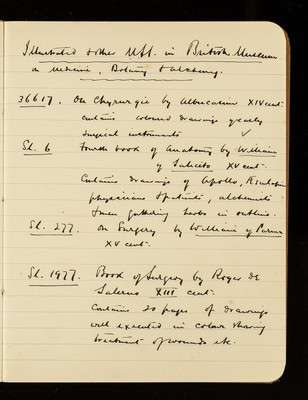 Illustrated & other MSS. in British Museum
on Medicine, Botany & alchemy.
36617. On Chyrurgie by Albucasim XIV cent.
contains coloured drawings
Surgical instruments
Sl. 6 Fourth book of Anatomy by William
of Saliceto XV cent.
Contains drawings of Apollo,
physicians & patients, alchemists
& men gathering herbs in outline.
Sl. 277. On Surgery by William of Parma
XV cent.
Sl. 1977. Book of Surgery by Roger de
Salerno XIII cent.
Contains 20 pages of drawings
well executed in colour showing
treatment of wounds etc.